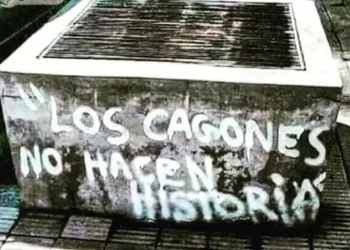 "LOS CAGONES
NO HACEN
HISTORIA"